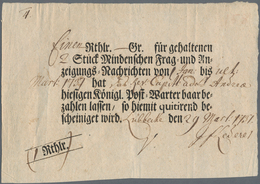 Einen Rthlr. — Gr. für gehaltenen
2 Stück Mindenschen Frag- und An-
zeigungs-Nachrichten von 1 Jan bis ult
Mart. hat
hiesigen Königl. Post-Warter baar be-
zahlen lassen, so hiemit quitirend be-
scheiniget wird. Lübbecke den 29 Mart.
1 Rthlr.